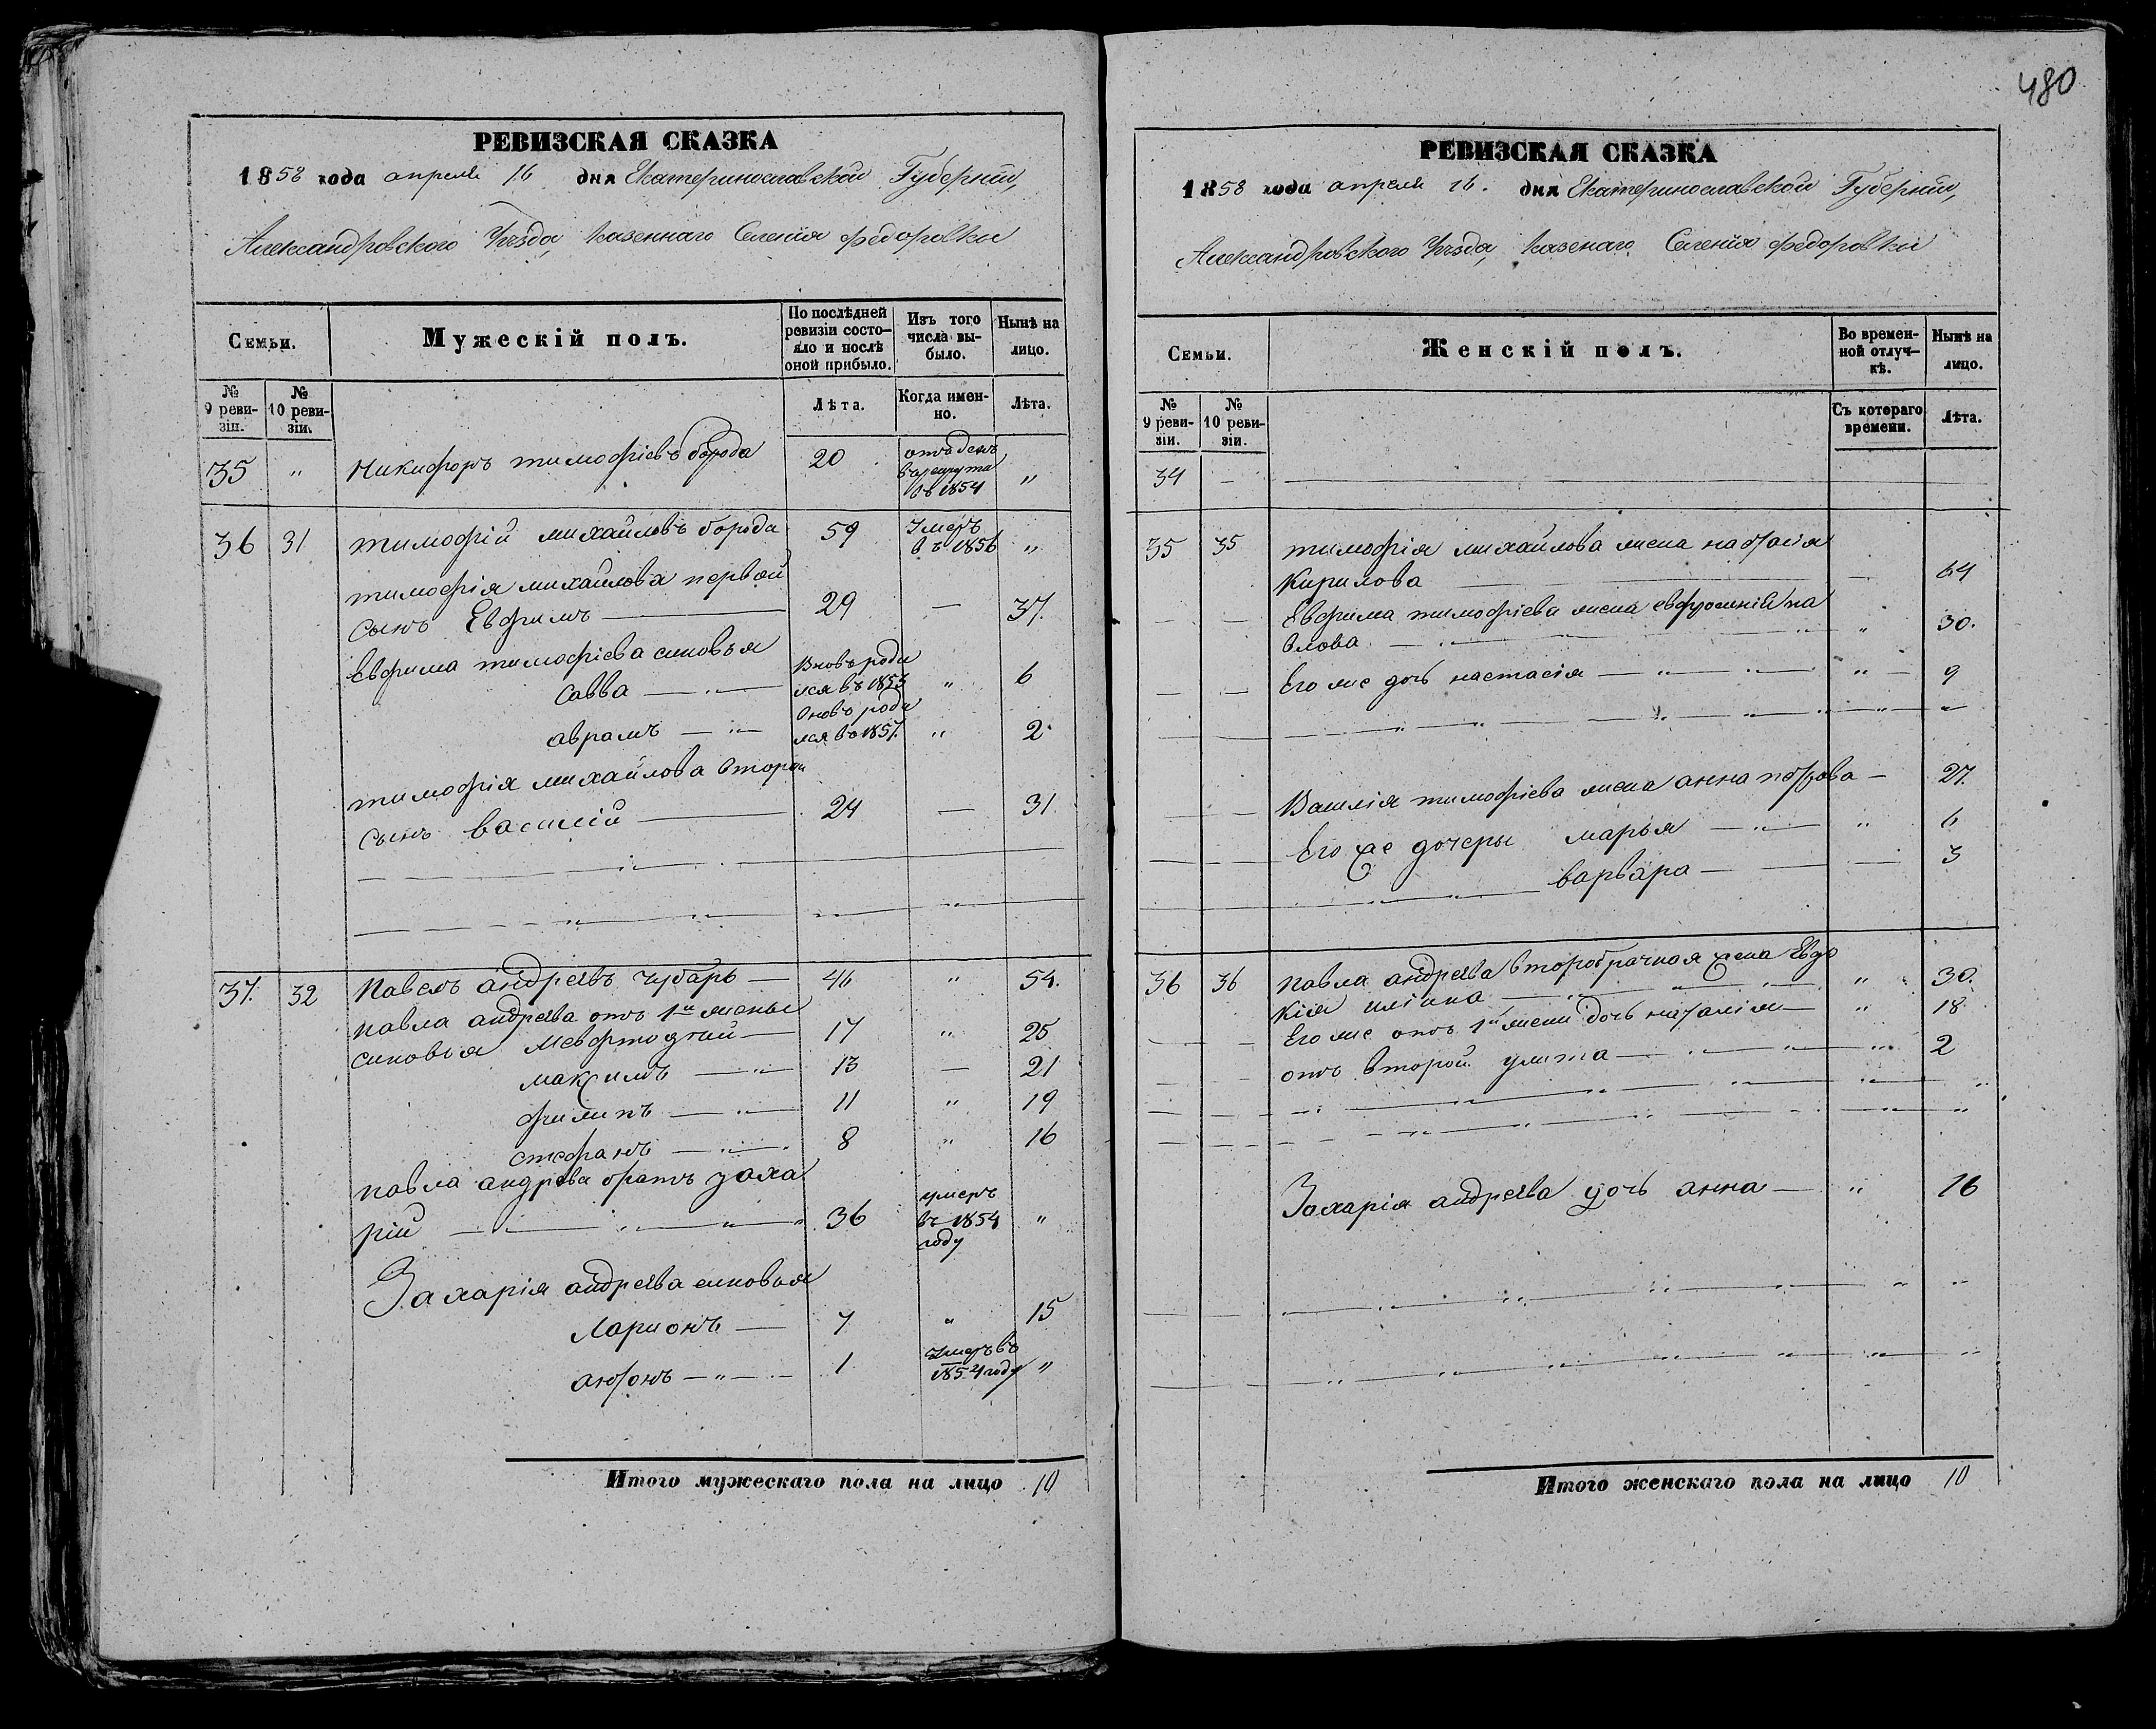 480
РЕВИЗСКАЯ СКАЗКА
1858 года апреля 16 дня Екатеринославской Губерніи,
Александровского Уѣзда, казеннаго Селенія Федоровки
Семьи.
Мужескій полъ.
По послѣдней ревизіи состояло и послѣ оной прибыло.
Изъ того числа выбыло.
Нынѣ на лицо.
№ 9 ревизіи.
№ 10 ревизіи.
Лѣта.
Когда именно.
Лѣта.
35 " Никифоръ тимофіевъ борода 20 отъденъ в рекруты въ 1854 "
36 31 тимофій михайловъ борода 59 Умеръ въ 1856 "
тимофія михайлова первой
сынъ Евфимъ 29 — 37.
Евфима тимофіева сыновья
савва вновь родился въ 1853 " 6
аврамъ вновь родился въ 1857. " 2
тимофія михайлова второй
сынъ василій 24 — 31
37. 32 Павелъ андреевъ чубарь 46 " 54.
павла андреева отъ 1й жены
сыновья 17 " 25
максимъ 13 — 21
филипъ 11 " 19
стефанъ 8 " 16
павла андрева братъ заха
рій 36 умеръ въ 1854 году "
Захарія андреева сыновья
Ларионъ 7 " 15
антонъ 1 Умеръ въ 1854 году "
Итого мужескаго пола на лицо 10
РЕВИЗСКАЯ СКАЗКА
1858 года апреля 16. дня Екатеринославской Губерніи,
Александровского Уѣзда, казенаго Селенія Федоровки
Семьи.
Женскій полъ.
Во временной отлучкѣ.
Нынѣ на лицо.
№ 9 ревизіи.
№ 10 ревизіи.
Съ котораго времени.
Лѣта.
34 —
35 35 тимофія михайлова жена настасія
Кирилова — 64
Евфима тимофіева жена евфросинія па
влова " 30.
Его же дочь настасія " 9
Василія тимофіева жена анна петрова — 27.
Его же дочеры марья " 6
варвара — 3
36 36 павла андреева второбрачная жена Евдо
кія " 30.
Его же отъ 1й жены дочь наталія " 18
отъ второй улита " 2
Захарія андреева дочь анна " 16
Итого женскаго пола на лицо 10